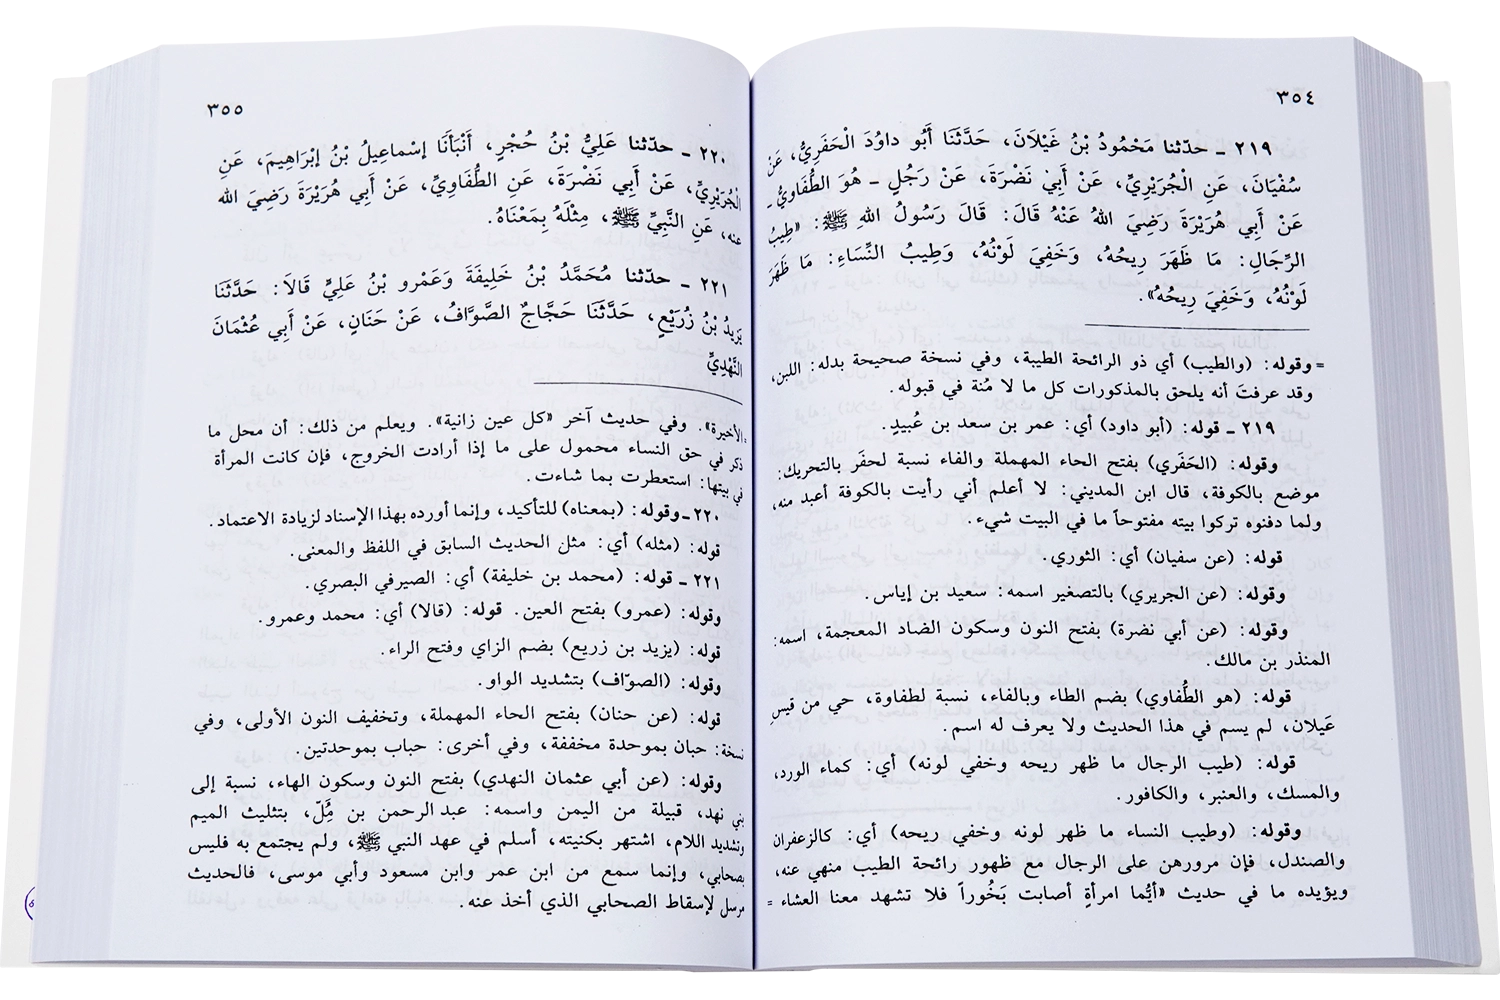 ٣٥٤
٢١٩ ـ حدّثنا مَحْمُودُ بْنُ غَيْلَانَ، حَدَّثَنَا أَبُو داوُدَ الْحَفَرِيُّ، عَنْ
سُفْيَانَ، عَنِ الْجُرَيْرِيِّ، عَنْ أَبِي نَضْرَةَ، عَنْ رَجُلٍ ـ هُوَ الطُّفَاوِيُّ ـ
عَنْ أَبِي هُرَيْرَةَ رَضِيَ اللهُ عَنْهُ قَالَ: قَالَ رَسُولُ اللهِ ﷺ: «طِيبُ
الرِّجَالِ: مَا ظَهَرَ رِيحُهُ، وَخَفِيَ لَوْنُهُ، وَطِيبُ النِّسَاءِ: مَا ظَهَرَ
لَوْنُهُ، وَخَفِيَ رِيحُهُ».
= وقوله: (والطيب) أي ذو الرائحة الطيبة، وفي نسخة صحيحة بدله: اللبن،
وقد عرفتَ أنه يلحق بالمذكورات كل ما لا مُنة في قبوله.
٢١٩ ـ قوله: (أبو داود) أي: عمر بن سعد بن عُبيدٍ.
وقوله: (الحَفَري) بفتح الحاء المهملة والفاء نسبة لحفَر بالتحريك:
موضع بالكوفة، قال ابن المديني: لا أعلم أني رأيت بالكوفة أعبد منه،
ولما دفنوه تركوا بيته مفتوحاً ما في البيت شيء.
قوله: (عن سفيان) أي: الثوري.
وقوله: (عن الجريري) بالتصغير اسمه: سعيد بن إياس.
وقوله: (عن أبي نضرة) بفتح النون وسكون الضاد المعجمة، اسمه:
المنذر بن مالك.
قوله: (هو الطُفاوي) بضم الطاء وبالفاء، نسبة لطفاوة، حي من قيسِ
عَيلان، لم يسم في هذا الحديث ولا يعرف له اسم.
قوله: (طيب الرجال ما ظهر ريحه وخفي لونه) أي: كماء الورد،
والمسك، والعنبر، والكافور.
وقوله: (وطيب النساء ما ظهر لونه وخفي ريحه) أي: كالزعفران
والصندل، فإن مرورهن على الرجال مع ظهور رائحة الطيب منهي عنه،
ويؤيده ما في حديث «أيُّما امرأةٍ أصابت بَخُوراً فلا تشهد معنا العشاء =
٣٥٥
٢٢٠ ـ حدّثنا عَلِيُّ بْنُ حُجْرٍ، أَنْبَأَنَا إسْماعِيلُ بْنُ إبْرَاهِيمَ، عَنِ
الْجُرَيْرِيِّ، عَنْ أَبِي نَضْرَةَ، عَنِ الطُّفَاوِيِّ، عَنْ أَبِي هُرَيْرَةَ رَضِيَ الله
عنه، عَنِ النَّبِيِّ ﷺ، مِثْلَهُ بِمَعْنَاهُ.
٢٢١ ـ حدّثنا مُحَمَّدُ بْنُ خَلِيفَةَ وَعَمْرو بْنُ عَلِيٍّ قَالَا: حَدَّثَنَا
يَزِيدُ بْنُ زُرَيْعٍ، حَدَّثَنَا حَجَّاجٌ الصَّوَّافُ، عَنْ حَنَانٍ، عَنْ أَبِي عُثْمَانَ
النَّهْدِيِّ
= الأخيرة». وفي حديث آخر «كل عين زانية». ويعلم من ذلك: أن محل ما
ذكر في حق النساء محمول على ما إذا أرادت الخروج، فإن كانت المرأة
في بيتها: استعطرت بما شاءت.
٢٢٠ ـ وقوله: (بمعناه) للتأكيد، وإنما أورده بهذا الإسناد لزيادة الاعتماد.
قوله: (مثله) أي: مثل الحديث السابق في اللفظ والمعنى.
٢٢١ ـ قوله: (محمد بن خليفة) أي: الصيرفي البصري.
وقوله: (عمرو) بفتح العين. قوله: (قالا) أي: محمد وعمرو.
قوله: (يزيد بن زريع) بضم الزاي وفتح الراء.
وقوله: (الصوّاف) بتشديد الواو.
قوله: (عن حنان) بفتح الحاء المهملة، وتخفيف النون الأولى، وفي
نسخة: حبان بموحدة مخففة، وفي أخرى: حباب بموحدتين.
وقوله: (عن أبي عثمان النهدي) بفتح النون وسكون الهاء، نسبة إلى
بني نهد، قبيلة من اليمن واسمه: عبد الرحمن بن مَُِلّ، بتثليث الميم
وتشديد اللام، اشتهر بكنيته، أسلم في عهد النبي ﷺ، ولم يجتمع به فليس
بصحابي، وإنما سمع من ابن عمر وابن مسعود وأبي موسى، فالحديث
مرسل لإسقاط الصحابي الذي أخذ عنه.